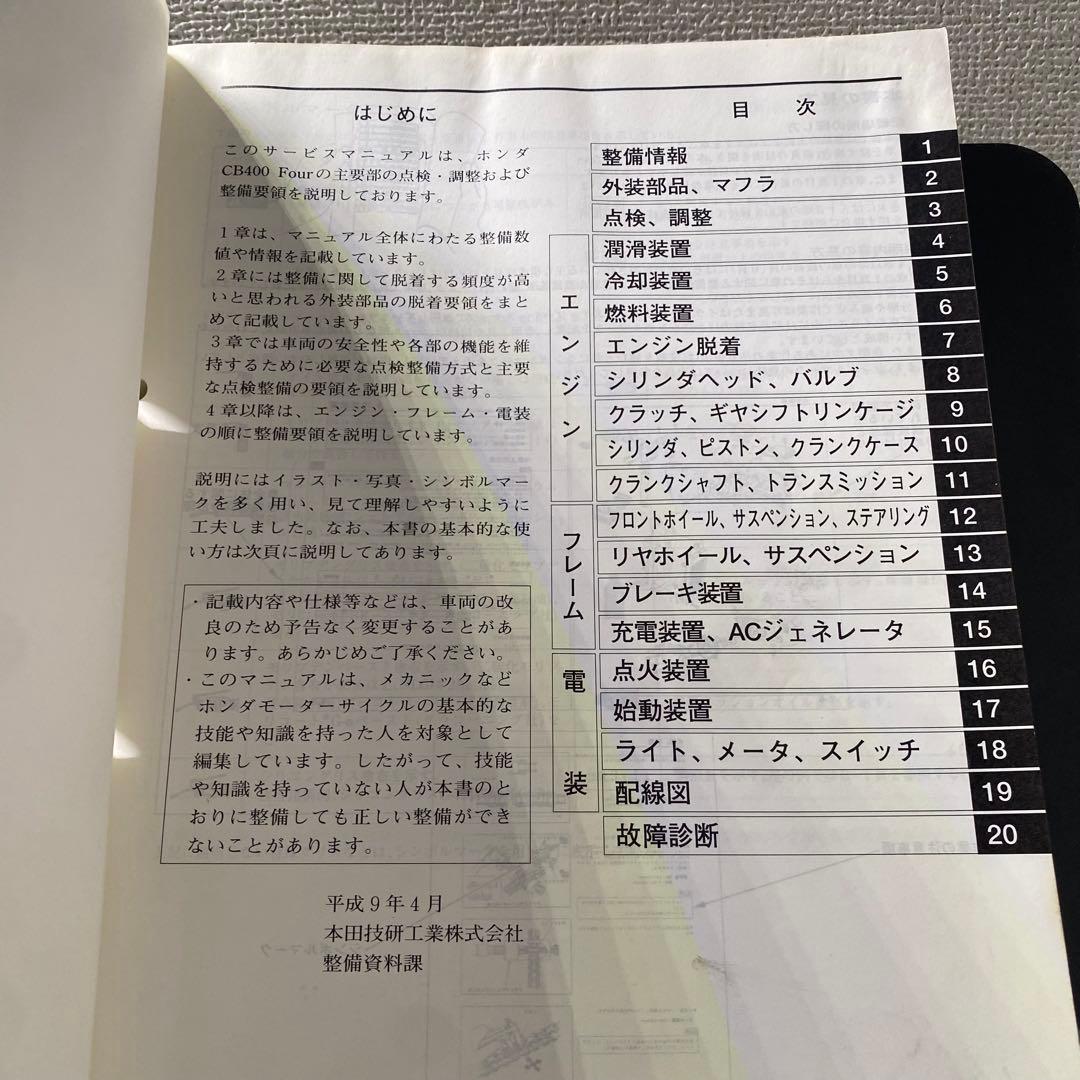 はじめに
このサービスマニュアルは、ホンダ
CB400 Fourの主要部の点検・調整および
整備要領を説明しております。
1章は、マニュアル全体にわたる整備数
値や情報を記載しています。
2章には整備に関して脱着する頻度が高
いと思われる外装部品の脱着要領をまと
めて記載しています。
3章では車両の安全性や各部の機能を維
持するために必要な点検整備方式と主要
な点検整備の要領を説明しています。
4章以降は、エンジン・フレーム・電装
の順に整備要領を説明しています。
説明にはイラスト・写真・シンボルマー
クを多く用い、見て理解しやすいように
工夫しました。なお、本書の基本的な使
い方は次頁に説明してあります。
・記載内容や仕様等などは、車両の改
良のため予告なく変更することがあ
ります。あらかじめご了承ください。
・このマニュアルは、メカニックなど
ホンダモーターサイクルの基本的な
技能や知識を持った人を対象として
編集しています。したがって、技能
や知識を持っていない人が本書のと
おりに整備しても正しい整備ができ
ないことがあります。
平成9年4月
本田技研工業株式会社
整備資料課
目次
整備情報 1
外装部品、マフラ 2
点検、調整 3
エンジン
潤滑装置 4
冷却装置 5
燃料装置 6
エンジン脱着 7
シリンダヘッド、バルブ 8
クラッチ、ギヤシフトリンケージ 9
シリンダ、ピストン、クランクケース 10
クランクシャフト、トランスミッション 11
フレーム
フロントホイール、サスペンション、ステアリング 12
リヤホイール、サスペンション 13
ブレーキ装置 14
充電装置、ACジェネレータ 15
電装
点火装置 16
始動装置 17
ライト、メータ、スイッチ 18
配線図 19
故障診断 20